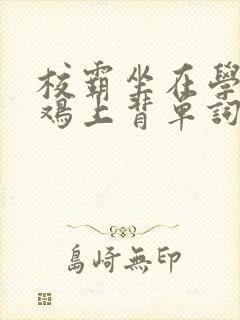 校霸坐在學
鴂上背單詞
島崎無印